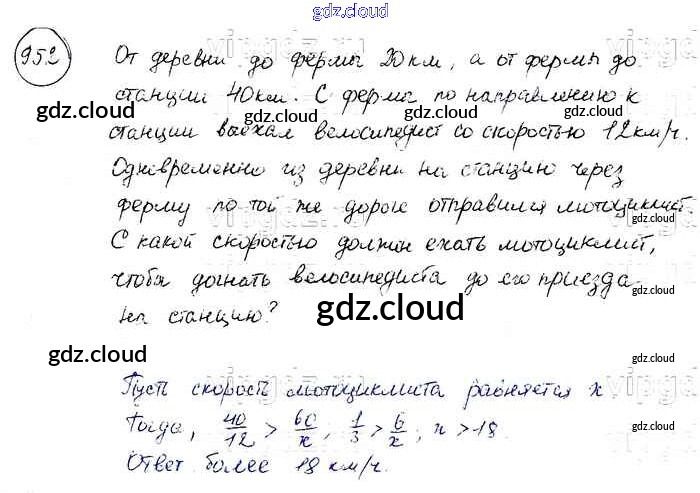 gdz.cloud
952
От деревни до фермы 20 км, а от фермы до
станции 40 км. С фермы по направлению к
станции выехал велосипедист со скоростью 12 км/ч.
Одновременно из деревни на станцию через
ферму по той же дороге отправился мотоциклист.
С какой скоростью должен ехать мотоциклист,
чтобы догнать велосипедиста до его приезда
на станцию?
gdz.cloud
gdz.cloud
Пусть скорость мотоциклиста равняется x
Тогда, 40/12 > 60/x; 1/3 > 6/x; x > 18.
Ответ более 18 км/ч.